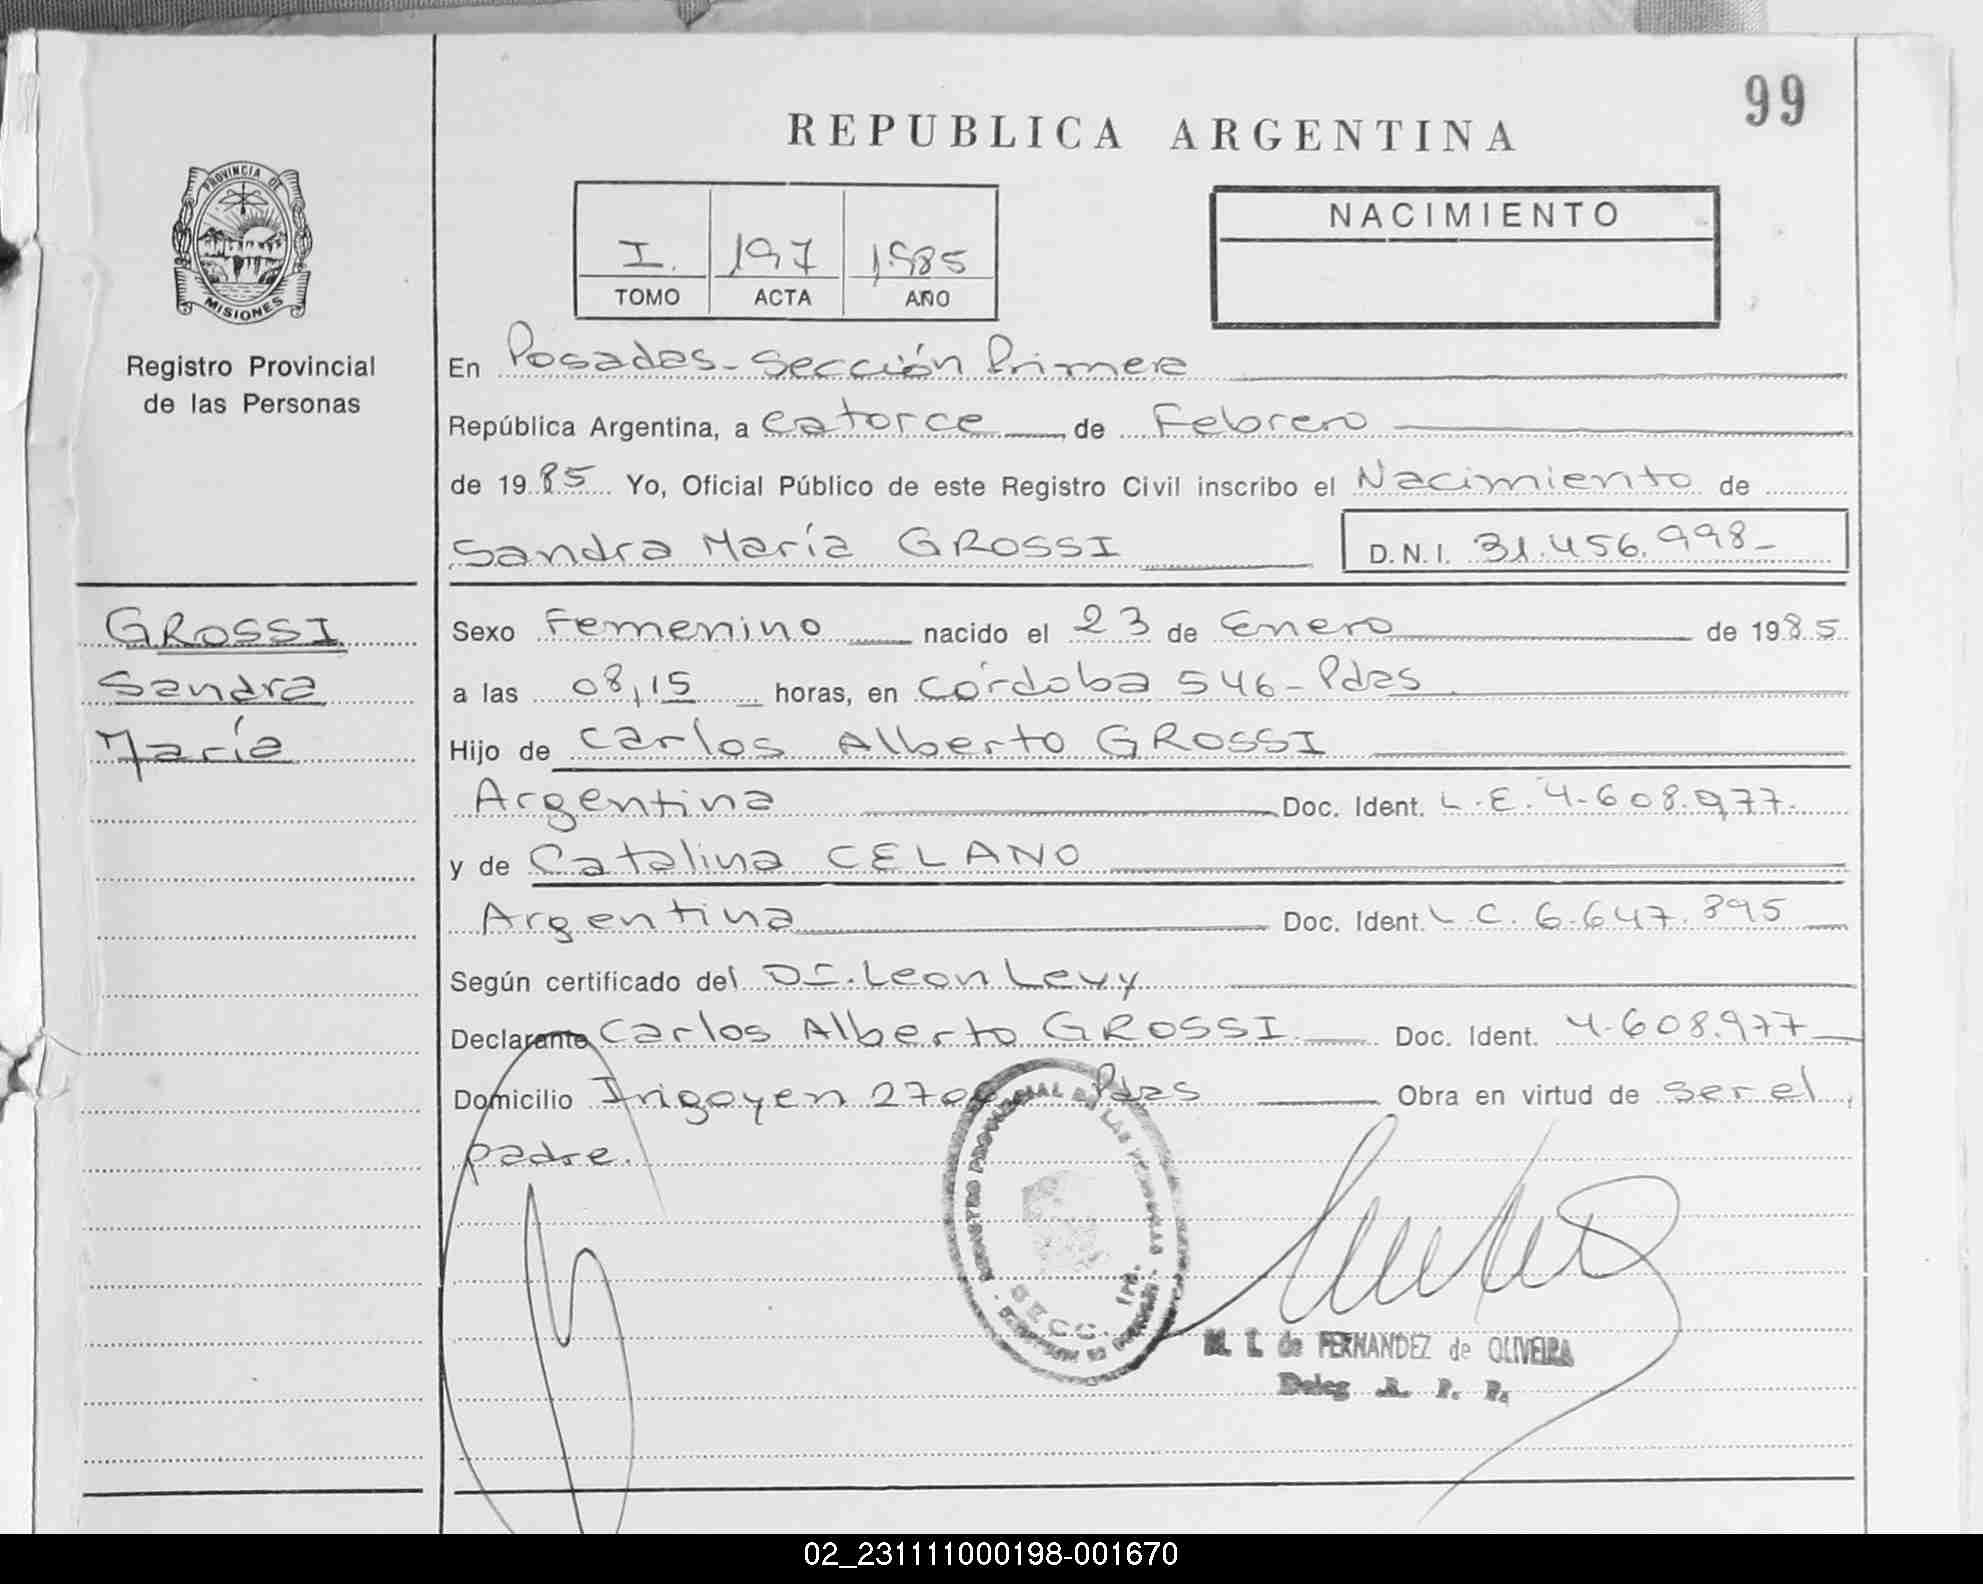 99
REPUBLICA ARGENTINA
PROVINCIA DE
MISIONES
Registro Provincial
de las Personas
I. 197 1985
TOMO ACTA AÑO
NACIMIENTO
En Posadas - Sección Primera
República Argentina, a catorce de Febrero
de 1985 Yo, Oficial Público de este Registro Civil inscribo el Nacimiento de
Sandra María GROSSI D.N.I. 31.456.998-
GROSSI
Sandra
María
Sexo Femenino nacido el 23 de Enero de 1985
a las 08,15 horas, en Córdoba 546 - Pdas
Hijo de Carlos Alberto GROSSI
Argentina Doc. Ident. L.E. 4.608.977.
y de Catalina CELANO
Argentina Doc. Ident. L.C. 6.647.895
Según certificado del Dr. Leon Levy
Declarante Carlos Alberto GROSSI Doc. Ident. 4.608.977
Domicilio Irigoyen Pdas Obra en virtud de ser el
padre.
REGISTRO PROVINCIAL DE LAS PERSONAS
SECC. 1ra.
M. I. de FERNANDEZ de OLIVEIRA
Deleg R. P. P.
02_231111000198-001670